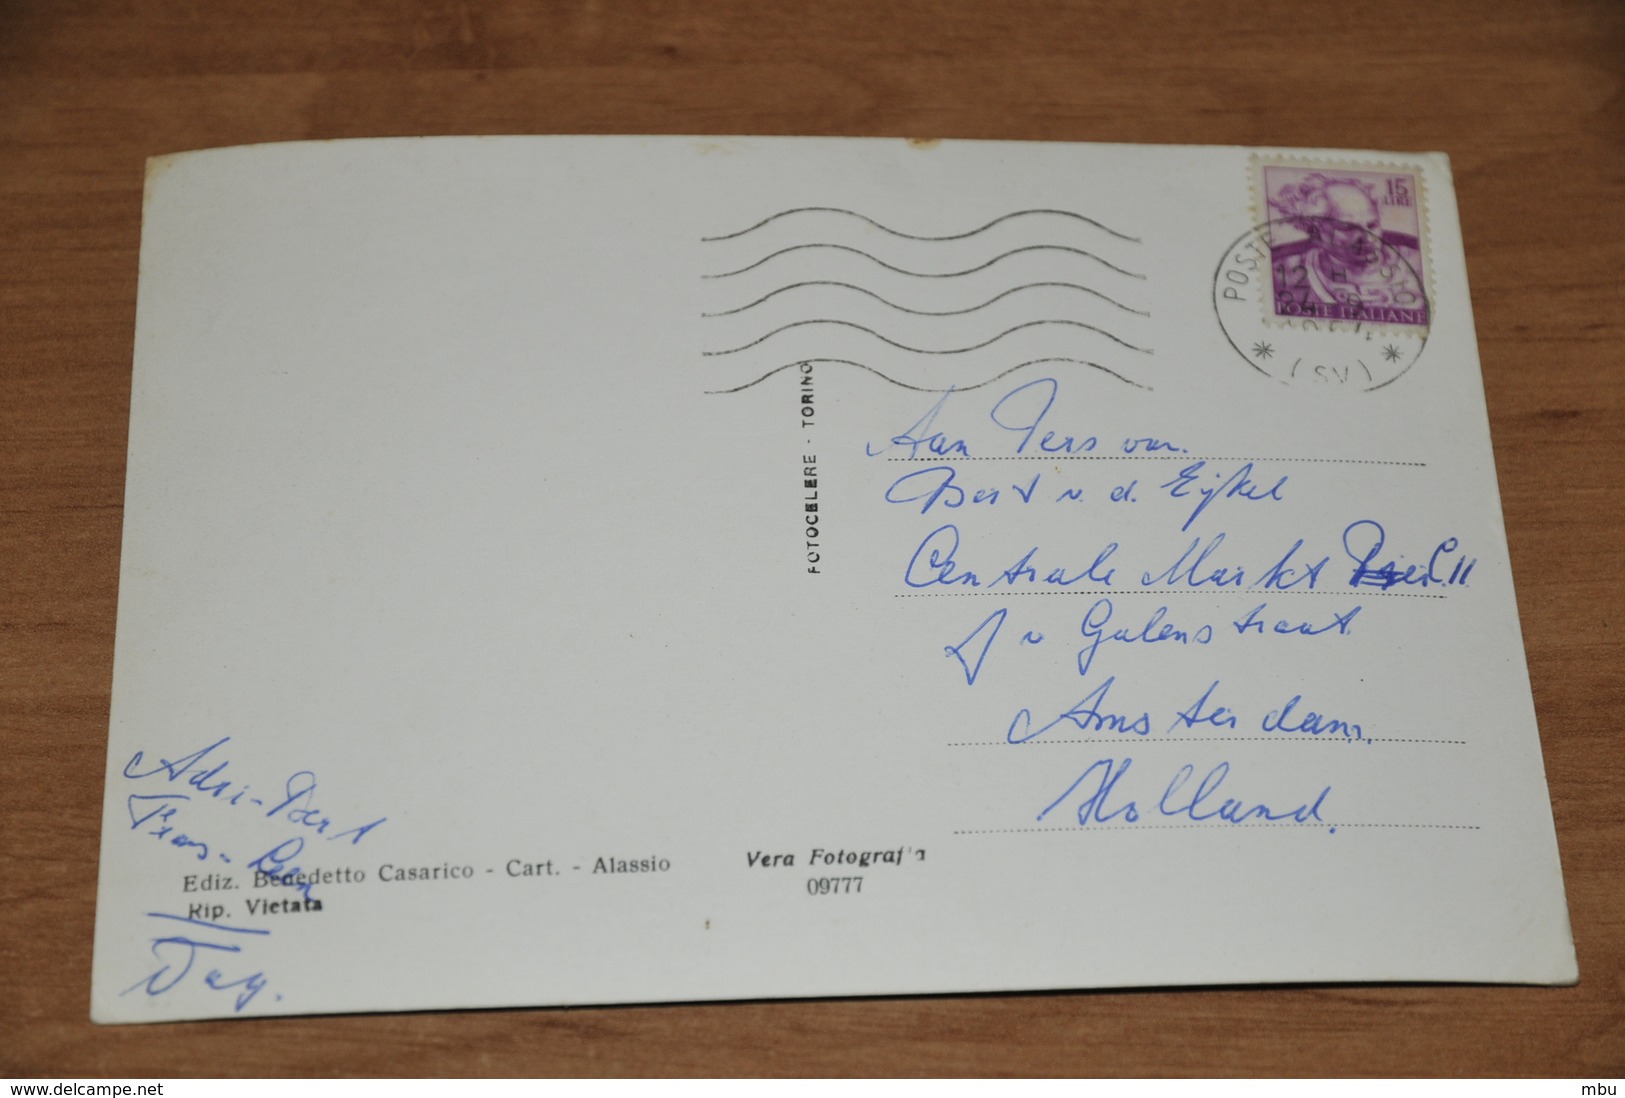 15
LIRE
POSTE ITALIANE
12 H
(SV)
FOTOCELERE - TORINO
Aan Pers van.
Bert v. d. Eijkel
Centrale Markt
J v Galenstraat
Amsterdam.
Holland.
Adri - Bert
Frans - Leen
Ediz. Benedetto Casarico - Cart. - Alassio
Rip. Vietata
Vera Fotografia
09777
Dag.
www.delcampe.net
mbu